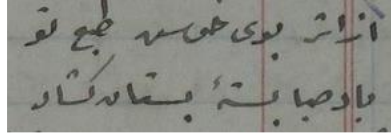 از اثر بوی خوس طبع تو
باد صبا بستهٔ بستان گشاد